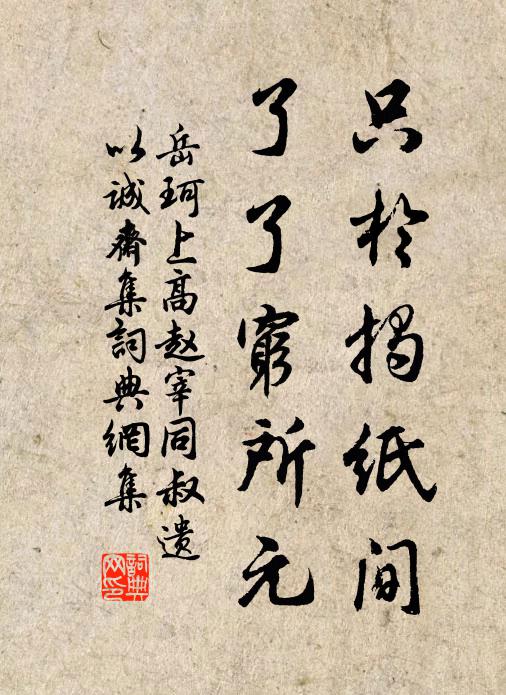 只於揭紙间
了了窮所元
岳珂上高赵宰同叔遗
以诚齋集詞典網集
詞典网印